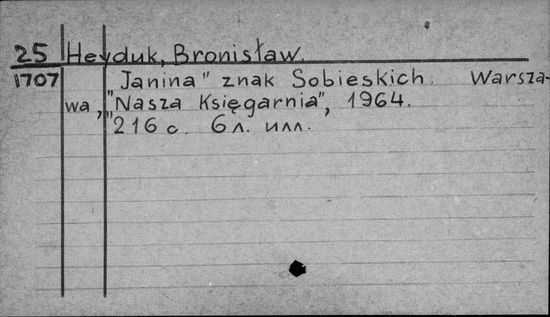 25 Heyduk, Bronisław.
1707 "Janina" znak Sobieskich. Warsza-
wa, "Nasza Księgarnia", 1964.
216 с. 6 л. илл.